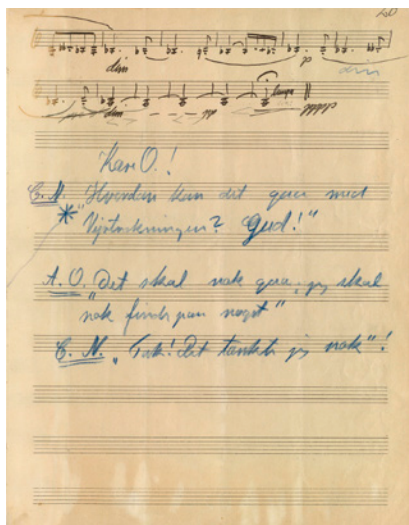 20
dim p dim
dim pp pppp
Kære O.!
C. N. Hvordan kan det gaa med
* "Vejrtrækningen? Gud!"
A. O. "Det skal nok gaa, jeg skal
nok finde paa noget"
C. N. "Tak! Det tænkte jeg nok"!